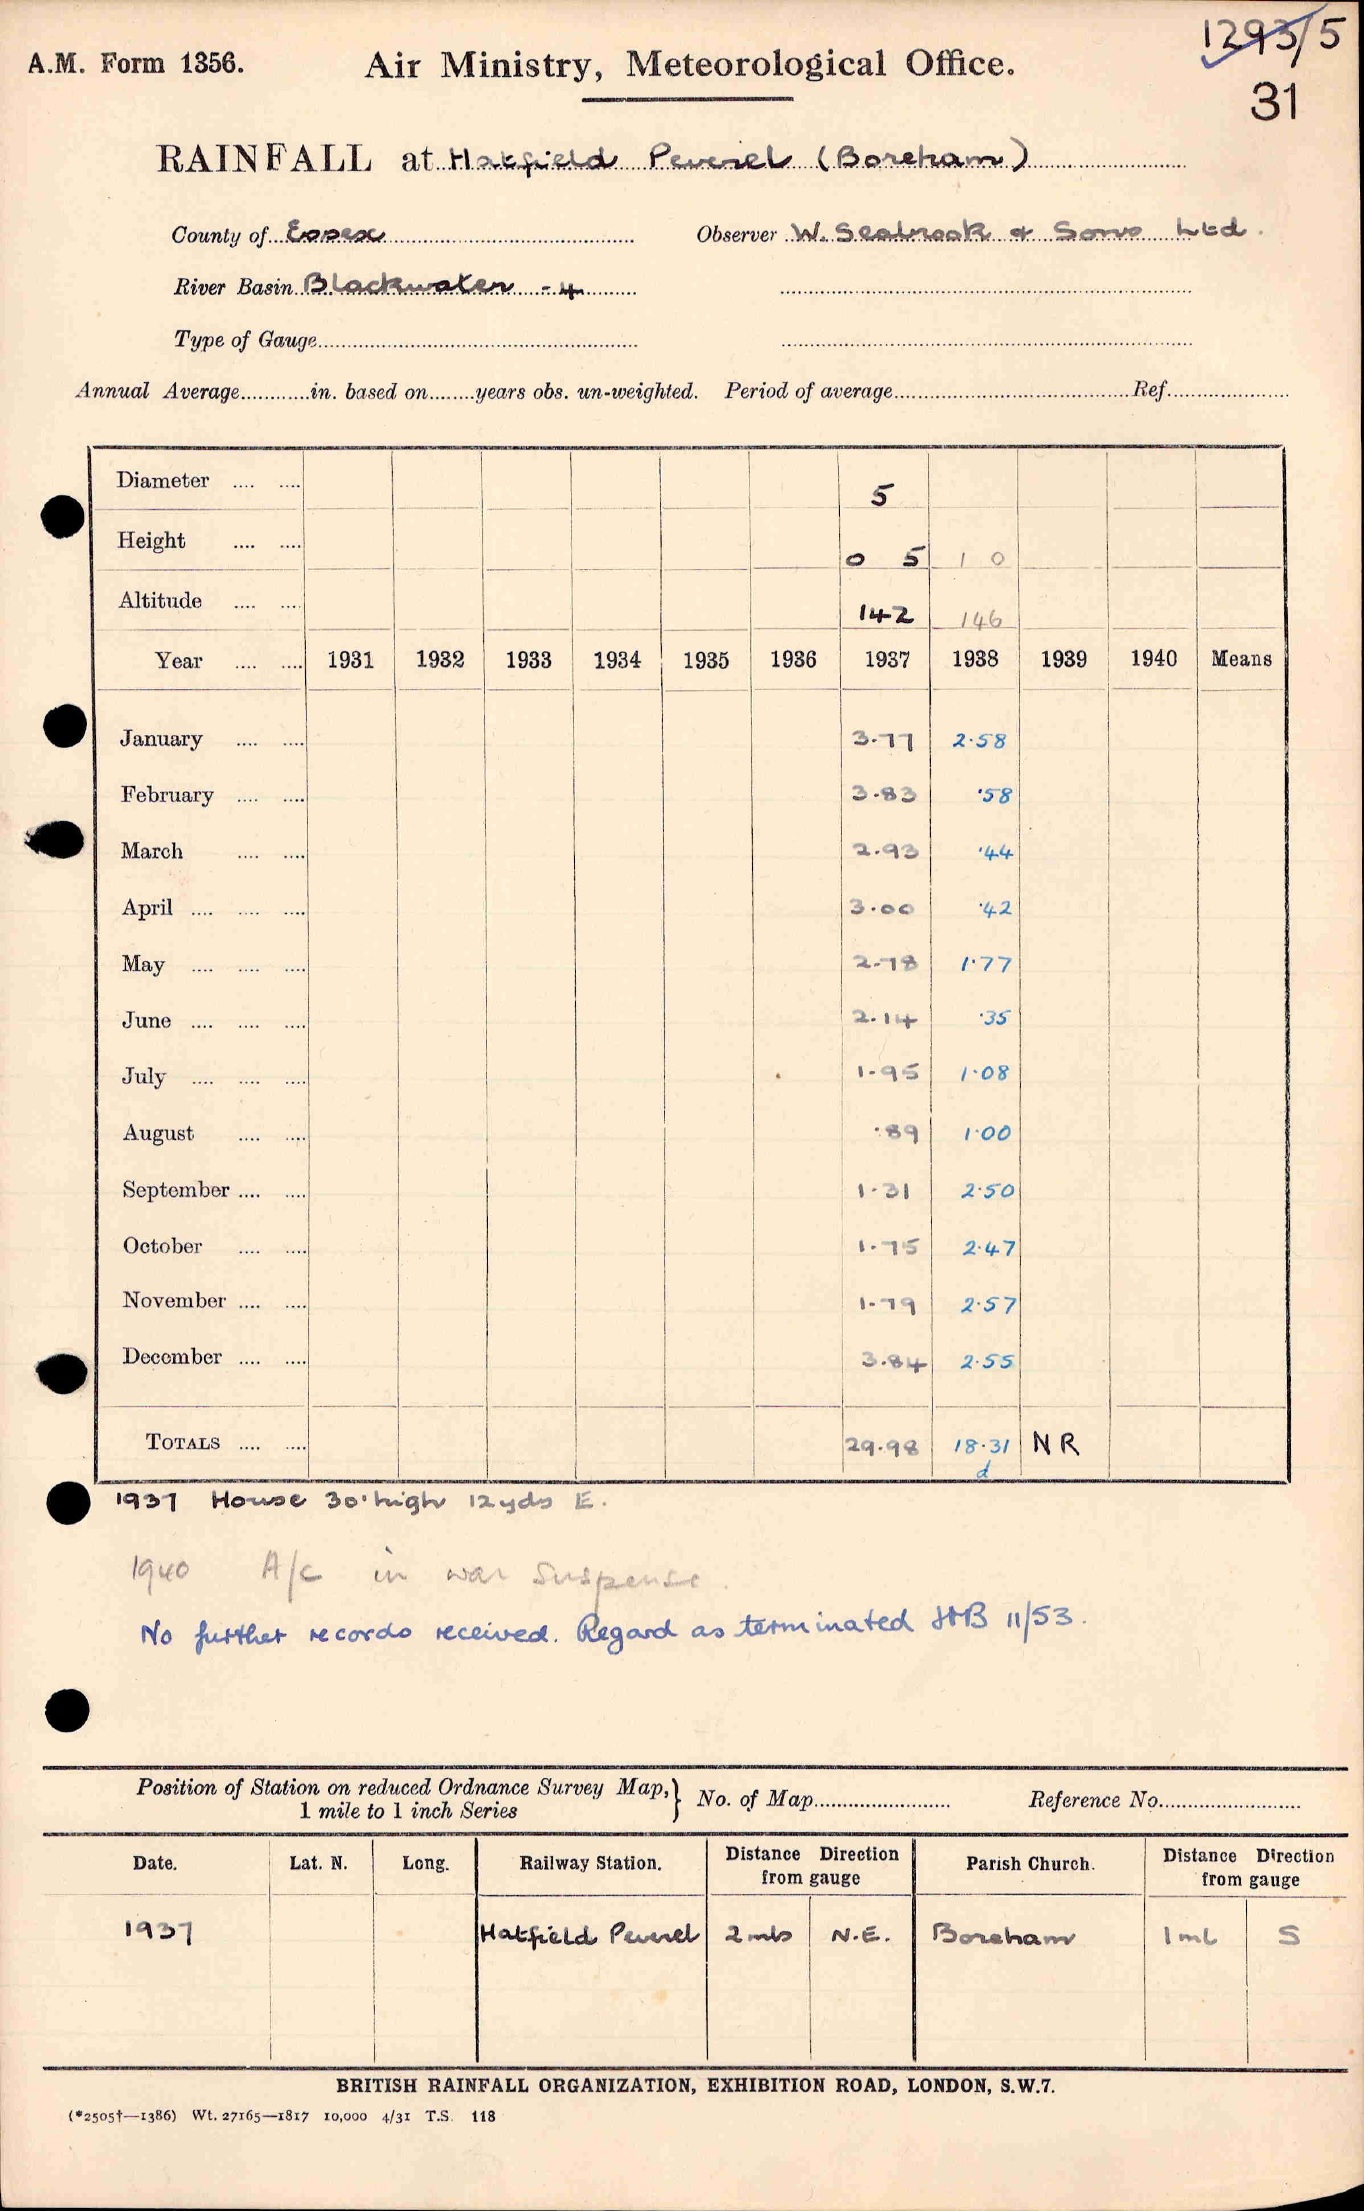 1293/5
A.M. Form 1356. Air Ministry, Meteorological Office.
31
RAINFALL at Hatfield Peverel (Boreham)
County of Essex Observer W. Seabrook & Sons Ltd.
River Basin Blackwater -4
Type of Gauge
Annual Average in. based on years obs. un-weighted. Period of average Ref.
Diameter 5
Height 0 5 1 0
Altitude 142 146
Year 1931 1932 1933 1934 1935 1936 1937 1938 1939 1940 Means
January 3.77 2.58
February 3.83 .58
March 2.93 .44
April 3.00 .42
May 2.78 1.77
June 2.14 .35
July 1.95 1.08
August .89 1.00
September 1.31 2.50
October 1.75 2.47
November 1.79 2.57
December 3.84 2.55
TOTALS 29.98 18.31 NR
d
1937 House 30' high 12 yds E.
1940 A/c in war suspense.
No further records received. Regard as terminated HB 11/53.
Position of Station on reduced Ordnance Survey Map, } No. of Map Reference No.
1 mile to 1 inch Series
Date. Lat. N. Long. Railway Station. Distance Direction from gauge Parish Church. Distance Direction from gauge
1937 Hatfield Peverel 2 mls N.E. Boreham 1 ml S
BRITISH RAINFALL ORGANIZATION, EXHIBITION ROAD, LONDON, S.W.7.
(*2505†—1386) Wt. 27165—1817 10,000 4/31 T.S. 118